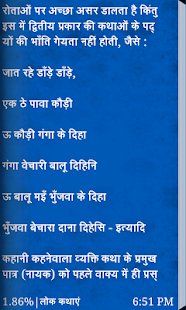 रोताओं पर अच्छा असर डालता है किंतु
इस में द्वितीय प्रकार की कथाओं के पद्
यों की भाँति गेयता नहीं होती, जैसे :
जात रहे डाँड़े डाँड़े,
एक ठे पावा कौड़ी
ऊ कौड़ी गंगा के दिहा
गंगा वेचारी बालू दिहिनि
ऊ बालू मइँ भुँजवा के दिहा
भुँजवा बेचारा दाना दिहेसि - इत्यादि
कहानी कहनेवाला व्यक्ति कथा के प्रमुख
पात्र (नायक) को पहले वाक्य में ही प्रस्
1.86%|लोक कथाएं 6:51 PM